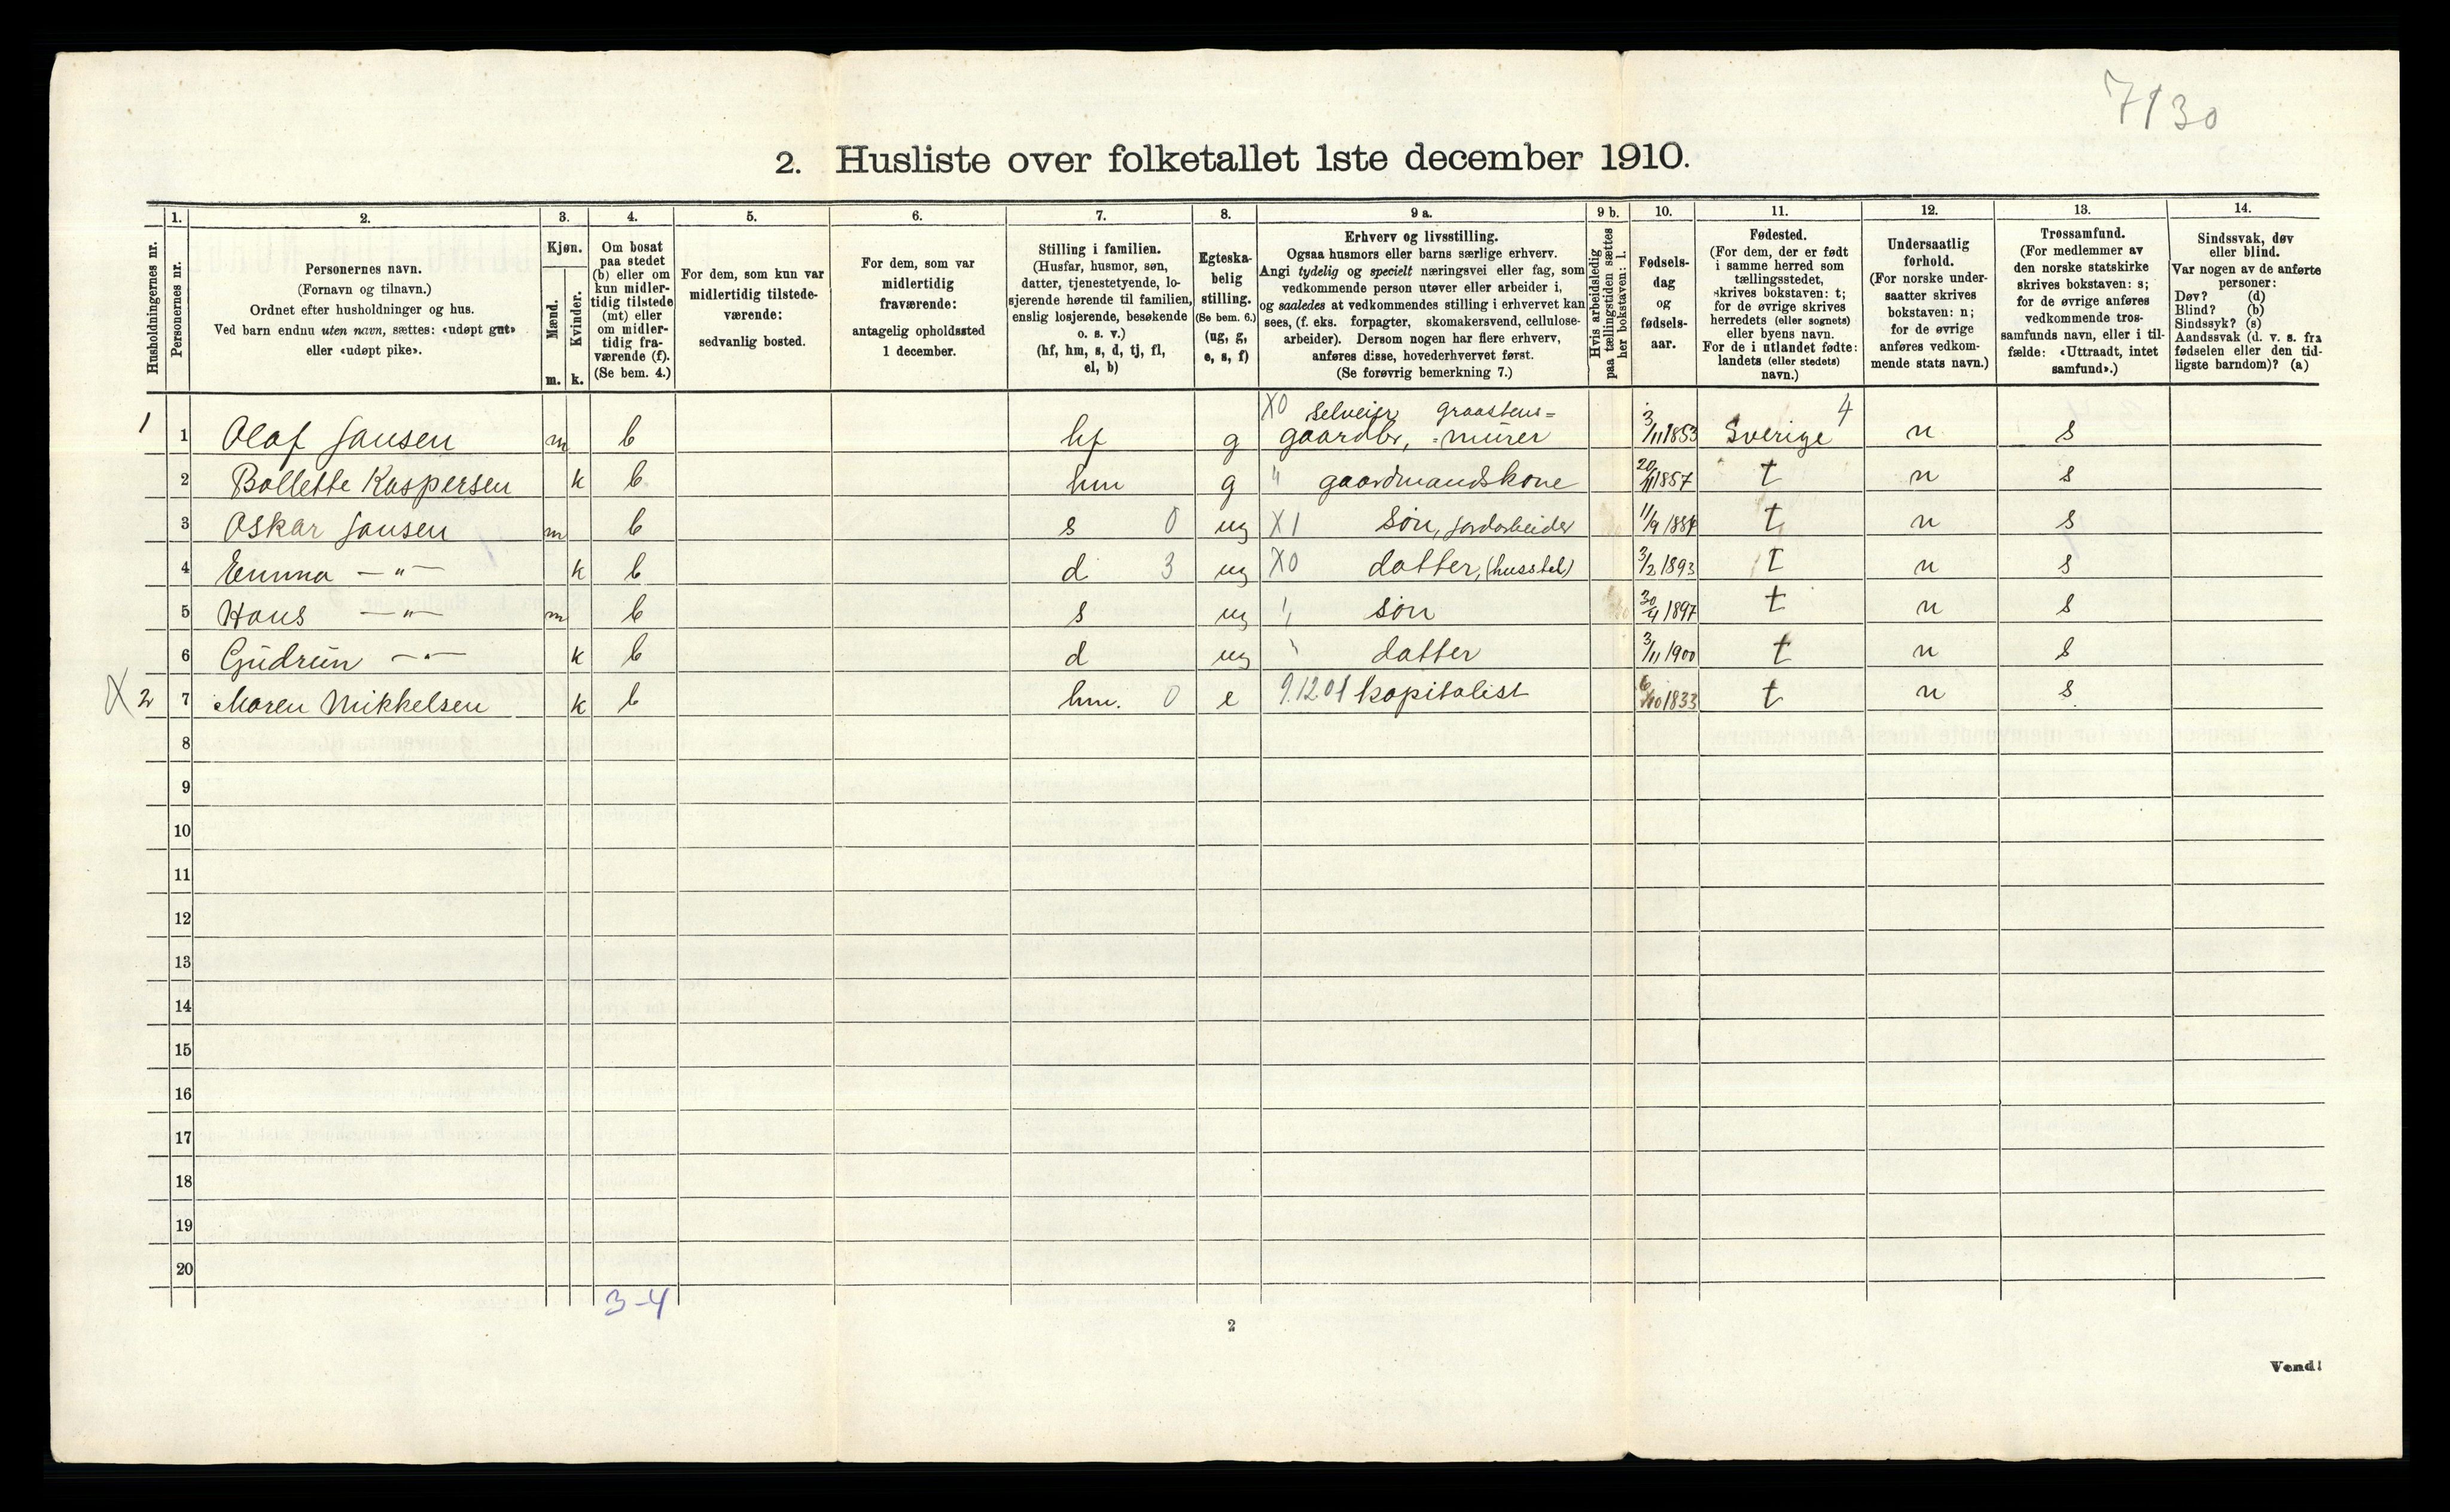 7130
2. Husliste over folketallet 1ste december 1910.
Husholdningernes nr.
1.
Personernes nr.
2.
Personernes navn.
(Fornavn og tilnavn.)
Ordnet efter husholdninger og hus.
Ved barn endnu uten navn, sættes: «udøpt gut»
eller «udøpt pike».
3.
Kjøn.
Mænd.
Kvinder.
m. k.
4.
Om bosat
paa stedet
(b) eller om
kun midler-
tidig tilstede
(mt) eller
om midler-
tidig fra-
værende (f).
(Se bem. 4.)
5.
For dem, som kun var
midlertidig tilstede-
værende:
sedvanlig bosted.
6.
For dem, som var
midlertidig
fraværende:
antagelig opholdssted
1 december.
7.
Stilling i familien.
(Husfar, husmor, søn,
datter, tjenestetyende, lo-
sjerende hørende til familien,
enslig losjerende, besøkende
o. s. v.)
(hf, hm, s, d, tj, fl,
el, b)
8.
Egteska-
belig
stilling.
(Se bem. 6.)
(ug, g,
e, s, f)
9 a.
Erhverv og livsstilling.
Ogsaa husmors eller barns særlige erhverv.
Angi tydelig og specielt næringsvei eller fag, som
vedkommende person utøver eller arbeider i,
og saaledes at vedkommendes stilling i erhvervet kan
sees, (f. eks. forpagter, skomakersvend, cellulose-
arbeider). Dersom nogen har flere erhverv,
anføres disse, hovederhvervet først.
(Se forøvrig bemerkning 7.)
9 b.
Hvis arbeidsledig
paa tællingstiden sættes
her bokstaven: l.
10.
Fødsels-
dag
og
fødsels-
aar.
11.
Fødested.
(For dem, der er født
i samme herred som
tællingsstedet,
skrives bokstaven: t;
for de øvrige skrives
herredets (eller sognets)
eller byens navn.
For de i utlandet fødte:
landets (eller stedets)
navn.)
12.
Undersaatlig
forhold.
(For norske under-
saatter skrives
bokstaven: n;
for de øvrige
anføres vedkom-
mende stats navn.)
13.
Trossamfund.
(For medlemmer av
den norske statskirke
skrives bokstaven: s;
for de øvrige anføres
vedkommende tros-
samfunds navn, eller i til-
fælde: «Uttraadt, intet
samfund».)
14.
Sindssvak, døv
eller blind.
Var nogen av de anførte
personer:
Døv? (d)
Blind? (b)
Sindssyk? (s)
Aandssvak (d. v. s. fra
fødselen eller den tid-
ligste barndom)? (a)
X0 selveier graastens= 4
1 1 Olaf Jansen m b hf g gaardbr, =murer 3/11 1853 Sverige n s
2 Bollette Kaspersen k b hm g " gaardmandskone 20/11 1857 t n s
3 Oskar Jansen m b s 0 ug X1 søn, jordarbeider 11/9 1884 t n s
4 Emma — " — k b d 3 ug X0 datter, (husstel) 3/2 1893 t n s
5 Hans — " — m b s ug " søn 30/4 1897 t n s
6 Gudrun — " — k b d ug " datter 3/11 1900 t n s
X 2 7 Maren Mikkelsen k b hm. 0 e 9.1201 kapitalist 6/10 1833 t n s
8
9
10
11
12
13
14
15
16
17
18
19
20
3-4
2
Vend!